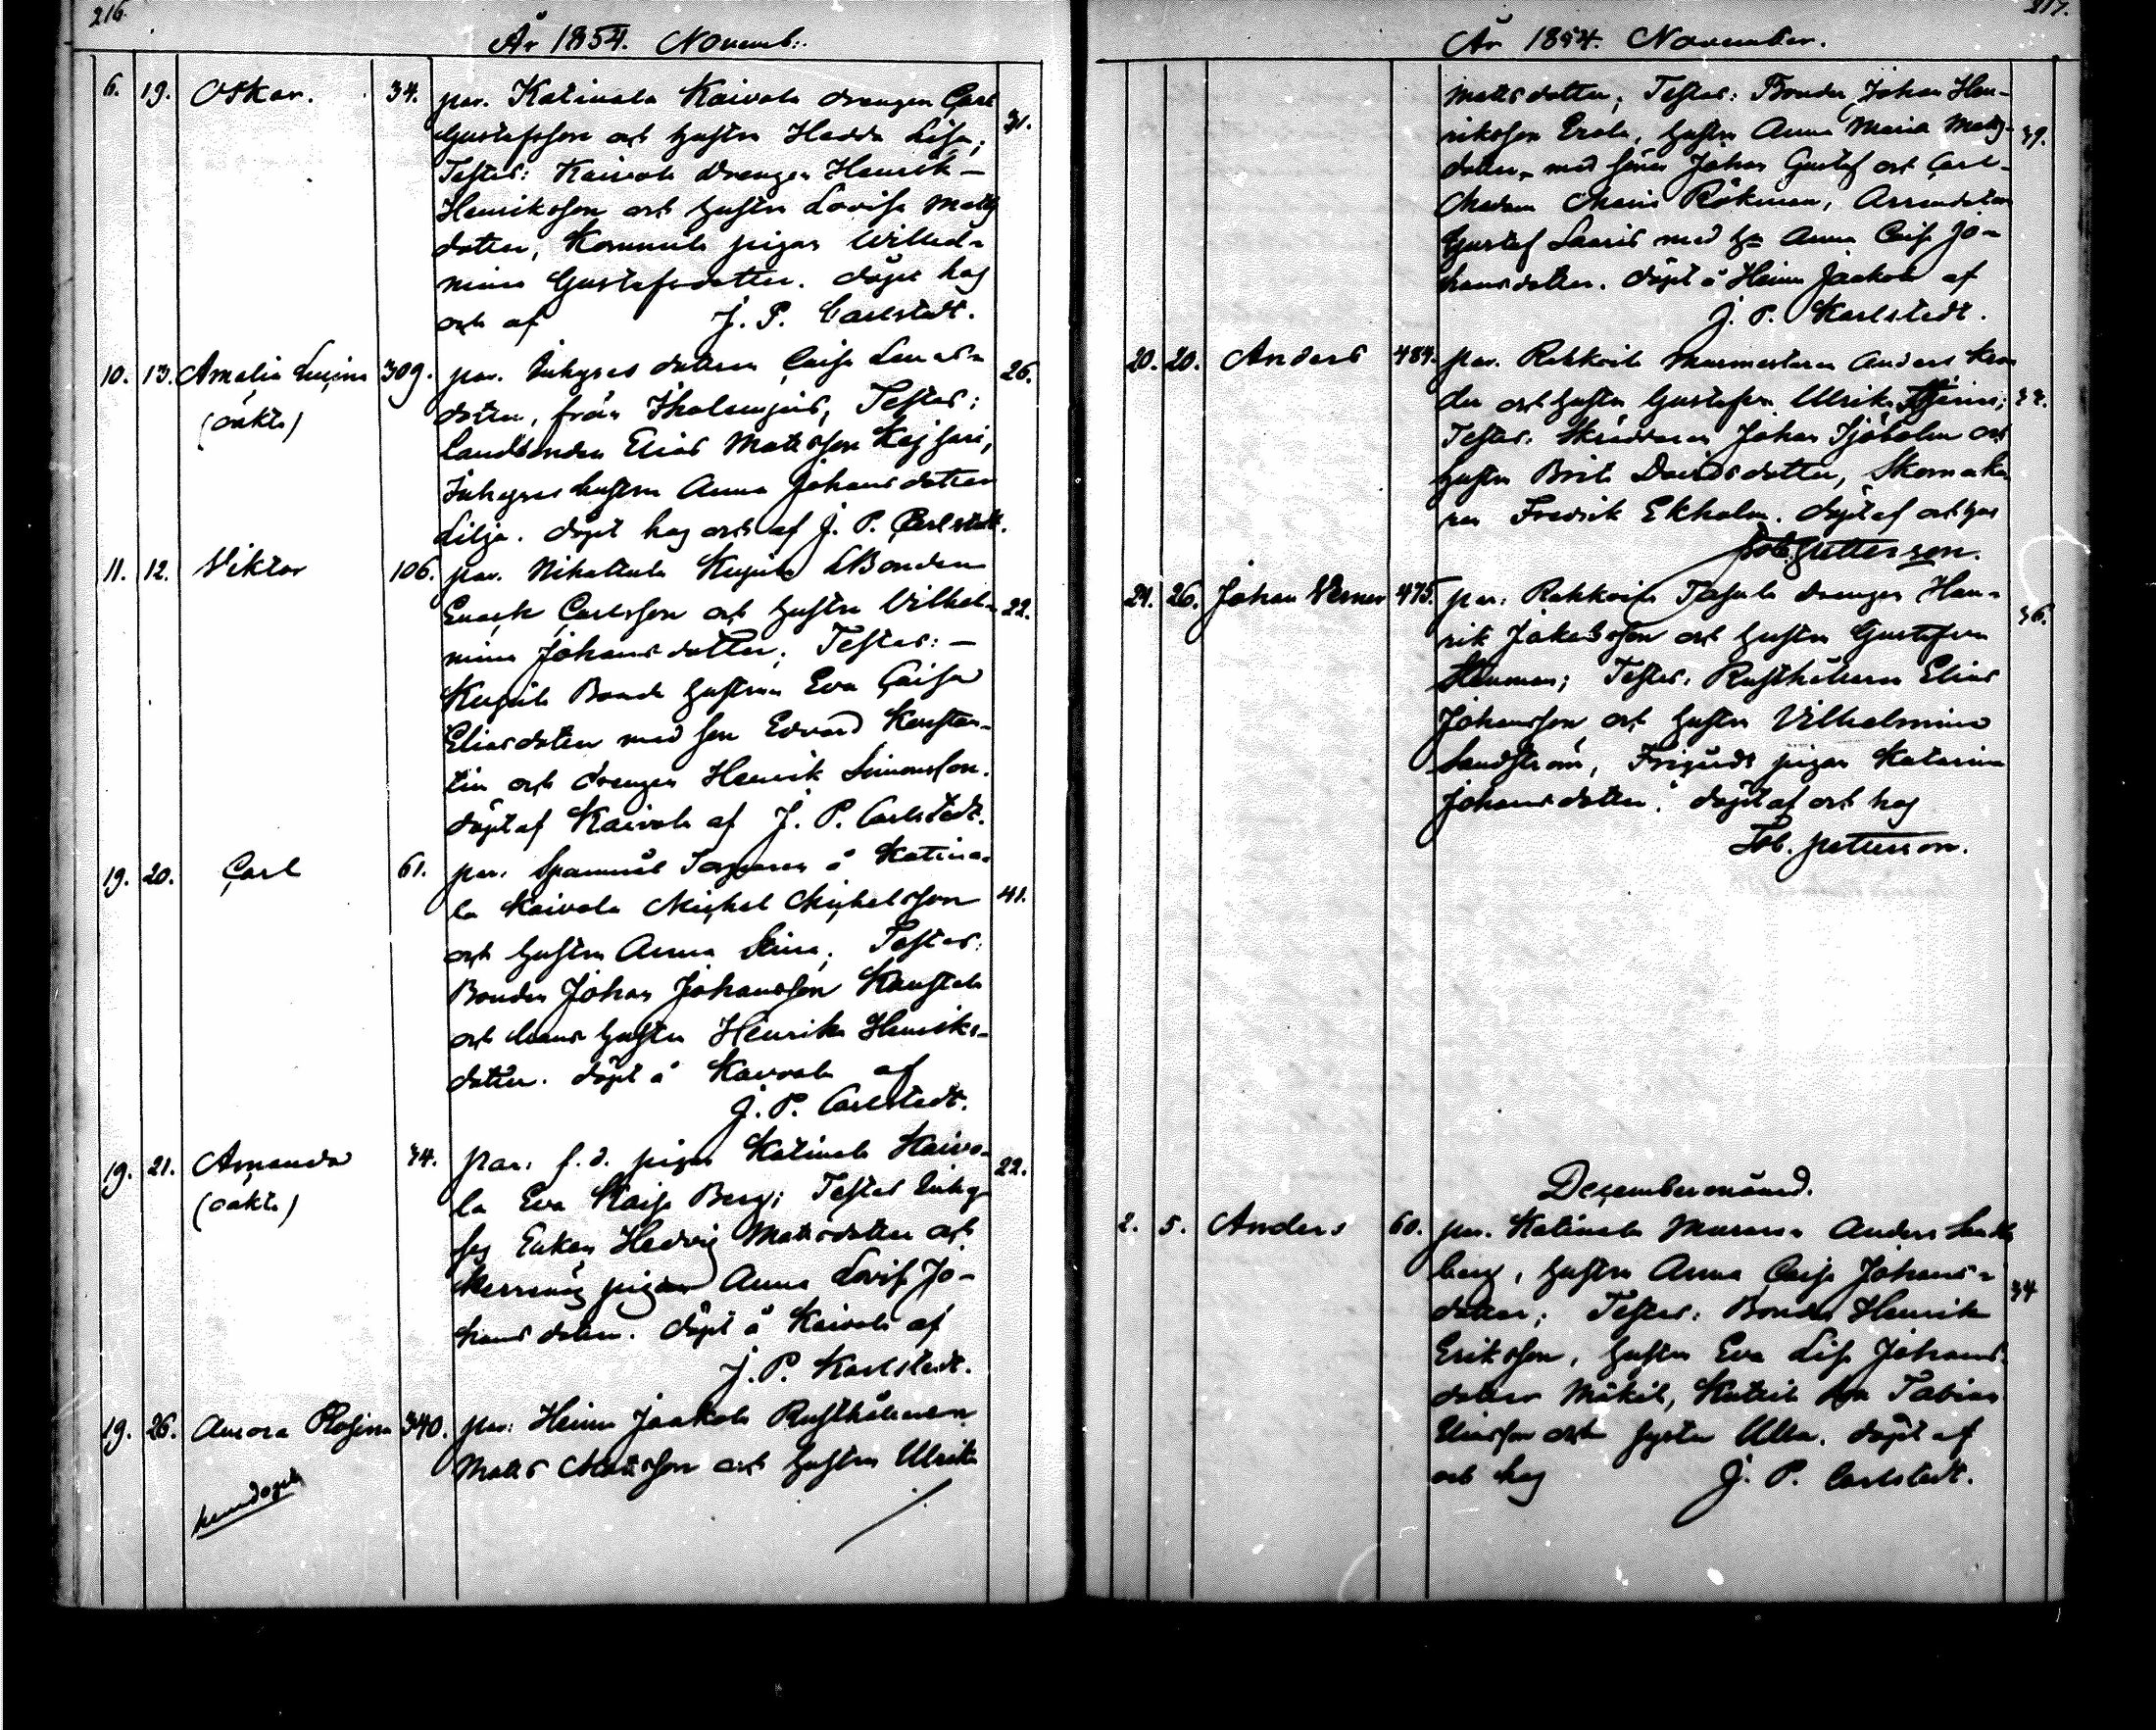 216.
År 1854. Novemb:.
6. 19. Oskar. 34. par. Katinala Kaivola drengen Carl
Gustafsson och hustru Hedda Lisa; 31.
Testes: Kaivola drengen Henrik
Henriksson och hustru Lovisa Matts
dotter, pigan Wilhel-
mina Gustafsdotter. döpt hos
och af J. P. Carlstedt.
10. 13. Amalia Lusina 309. par. Inhyses dottern Caisa Lenas- 26.
(oäkta) dotter, från Testes:
Landbonden Elias Mattsson
Inhyses hustrun Anna Johansdotter
Lilja. döpt hos och af J. P. Carlstedt.
11. 12. Viktor 106. par. Nihattula LBonden
Enock Carlsson och hustru Vilhel- 22.
mina Johansdotter; Testes: -
Bonde hustrun Eva Caisa
Eliasdotter med son Edvard Konstan-
tin och drengen Henrik Simonsson.
döpt af Kaivola af J. P. Carlstedt.
19. 20. Carl 61. par. Spannmåls Torparen å Katina-
la Kaivola Michel Michelsson 41.
och hustru Anna Stina; Testes:
Bonden Johan Johansson
och hans hustru Henrika Henriks-
dotter. döpt å Kaivola af
J. P. Carlstedt.
19. 21. Amanda 34. par. f.d. pigan Katinala Kaivo- 22.
(oäkta) la Eva Kaisa Berg; Testes Inhy-
ses Enkan Hedvig Mattsdotter och
pigan Anna Lovisa Jo-
hansdotter. döpt å Kaivola af
J. P. Karlstedt.
19. 26. Aurora Rosina 340. par: Heinu Jaakola Rusthållaren
Matts Mattsson och hustru Ulrika
nöddöpt
./.
217.
År 1854. November.
Matts dotter; Testes: Bonden Johan Hen-
riksson Erola, hustru Anna Maria Matts- 39.
dotter, med söner Johan Gustaf och Carl-
Madam Maria Rökman, Arrendatorn
Gustaf Saaris med hu Anna Caisa Jo-
hansdotter. döpt å Heinu Jaakola af
J. P. Karlstedt.
20. 20. Anders 484. par. Rekkoila Murmestaren Anders
och hustru Gustafva Ulrika
Testes: Skräddaren Johan Sjöholm och
hustru Brita Davidsdotter, Skomaka-
ren Fredrik Ekholm. döpt af och hos
Tob. Petterson.
24. 26. Johan Verner 475. par: Rekkoila drengen Hen-
rik Jakobsson och hustru Gustafva 36.
Testes. Rusthållaren Elias
Johansson och hustru Vilhelmina
Sandström, pigan Katarina
Johansdotter. döpt af och hos
Tob. Petterson.
December månad.
2. 5. Anders 60. par. Katinala Muraren Anders Sand-
berg, hustru Anna Caisa Johans-
dotter; Testes: Bonden Henrik 34
Eriksson, hustru Eva Lisa Johans-
dotter Mäkilä, son Tobias
Eliasson och syster Ulla. döpt af
och hos J. P. Carlstedt.